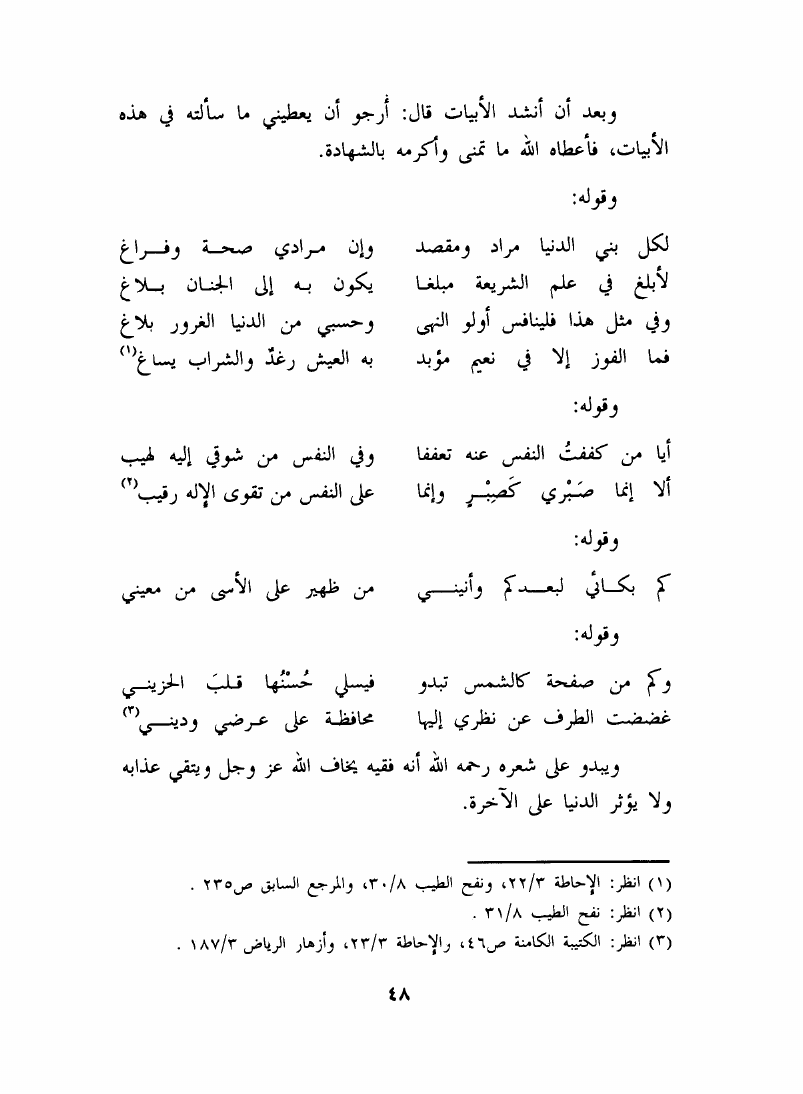 وبعد أن أنشد الأبيات قال: أرجو أن يعطيني ما سألته في هذه
الأبيات، فأعطاه الله ما تمنى وأكرمه بالشهادة.
وقوله:
لكل بني الدنيا مراد ومقصد وإن مرادي صحة وفراغ
لأبلغ في علم الشريعة مبلغا يكون به إلى الجنان بلاغ
وفي مثل هذا فلينافس أولو النهى وحسبي من الدنيا الغرور بلاغ
فما الفوز إلا في نعيم مؤبد به العيش رغدٌ والشراب يساغ(١)
وقوله:
أيا من كففتُ النفس عنه تعففا وفي النفس من شوقي إليه لهيب
ألا إنما صَبْري كَصِبْرٍ وإنما على النفس من تقوى الإله رقيب(٢)
وقوله:
كم بكائي لبعدكم وأنيني من ظهير على الأسى من معيني
وقوله:
وكم من صفحة كالشمس تبدو فيسلي حُسْنُها قلبَ الحزيني
غضضت الطرف عن نظري إليها محافظة على عرضي وديني(٣)
ويبدو على شعره رحمه الله أنه فقيه يخاف الله عز وجل ويتقي عذابه
ولا يؤثر الدنيا على الآخرة.
(١) انظر: الإحاطة ٢٢/٣، ونفح الطيب ٣٠/٨، والمرجع السابق ص٢٣٥ .
(٢) انظر: نفح الطيب ٣١/٨ .
(٣) انظر: الكتيبة الكامنة ص٤٦، والإحاطة ٢٣/٣، وأزهار الرياض ١٨٧/٣ .
٤٨